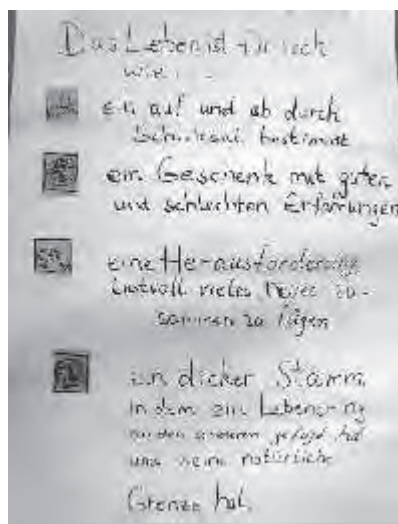 Das Leben ist für mich
wie...
ein auf und ab durch
Schicksal bestimmt
ein Geschenk mit guten
und schlechten Erfahrungen
eine Herausforderung
lustvoll vieles Neues zu-
sammen zu fügen
ein dicker Stamm
in dem ein Lebensring
an den anderen gefügt hat
und seine natürliche
Grenze hat.